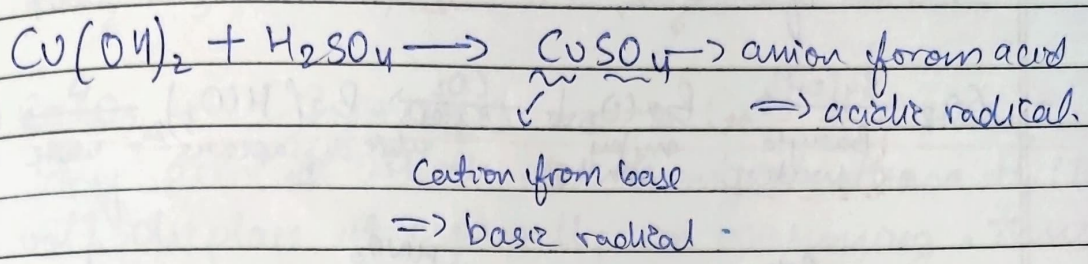 Cu(OH)₂ + H₂SO₄ → CuSO₄ → anion from acid
⇒ acidic radical.
Cation from base
⇒ basic radical.